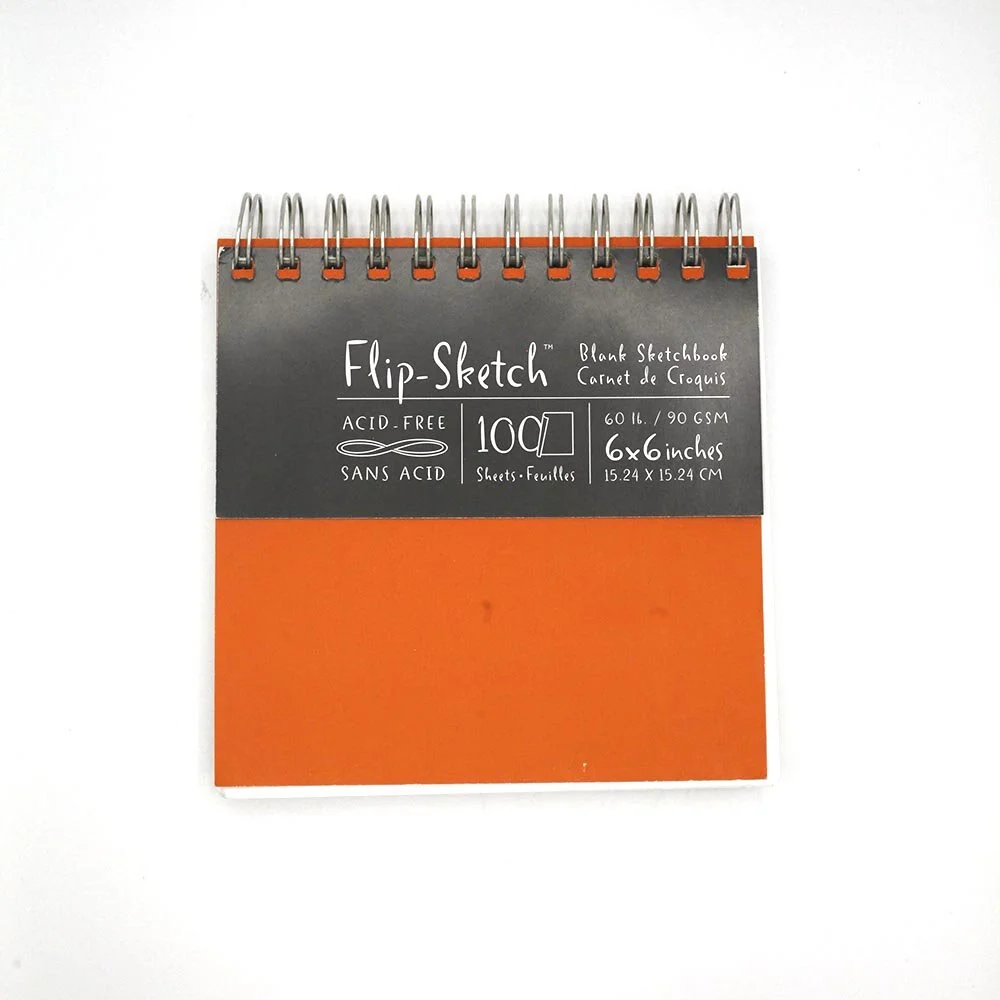 Flip-Sketch™
Blank Sketchbook
Carnet de Croquis
ACID-FREE
SANS ACID
100
Sheets • Feuilles
60 lb. / 90 GSM
6x6 inches
15.24 X 15.24 CM